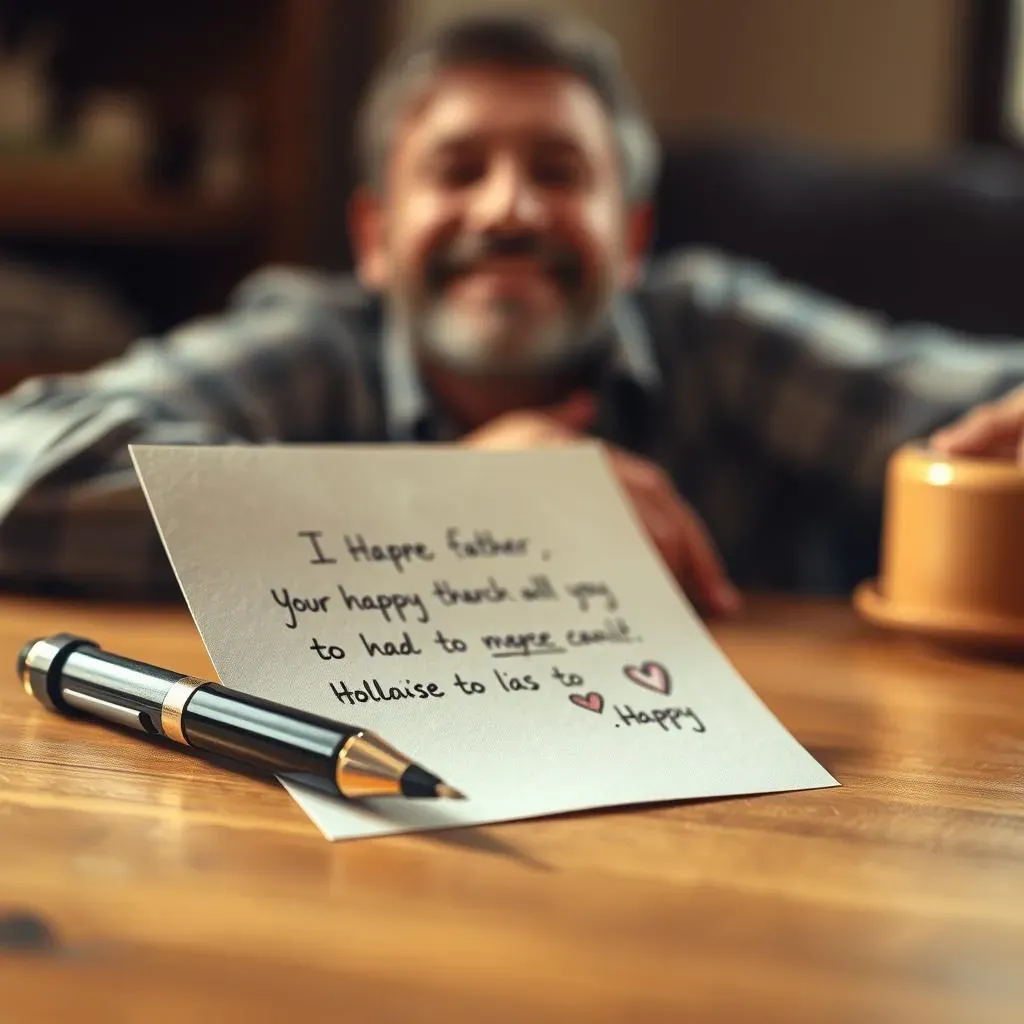 I Hapre father,
Your happy thanch all you
to had to mapre
Hollaise to lias to
.Happy